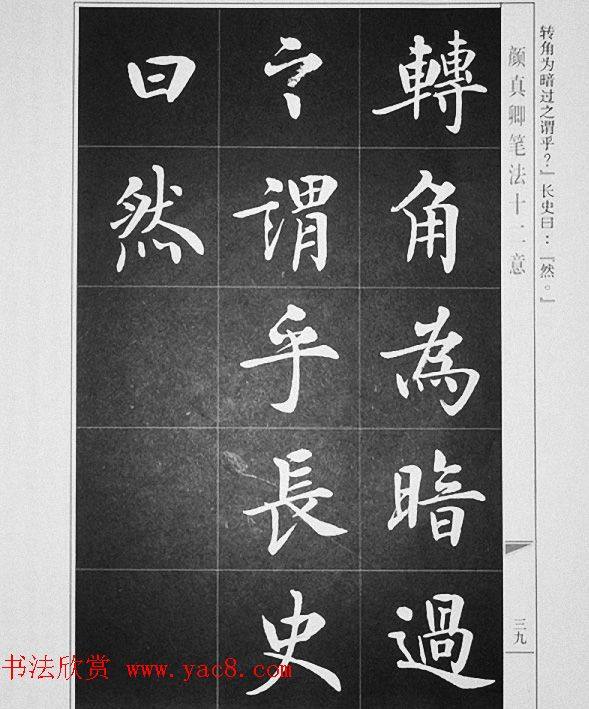 转角为暗过之谓乎？』长史曰：『然。』
颜真卿笔法十二意
轉角為暗過
之謂乎長史
曰然
三九
书法欣赏 www.yac8.com